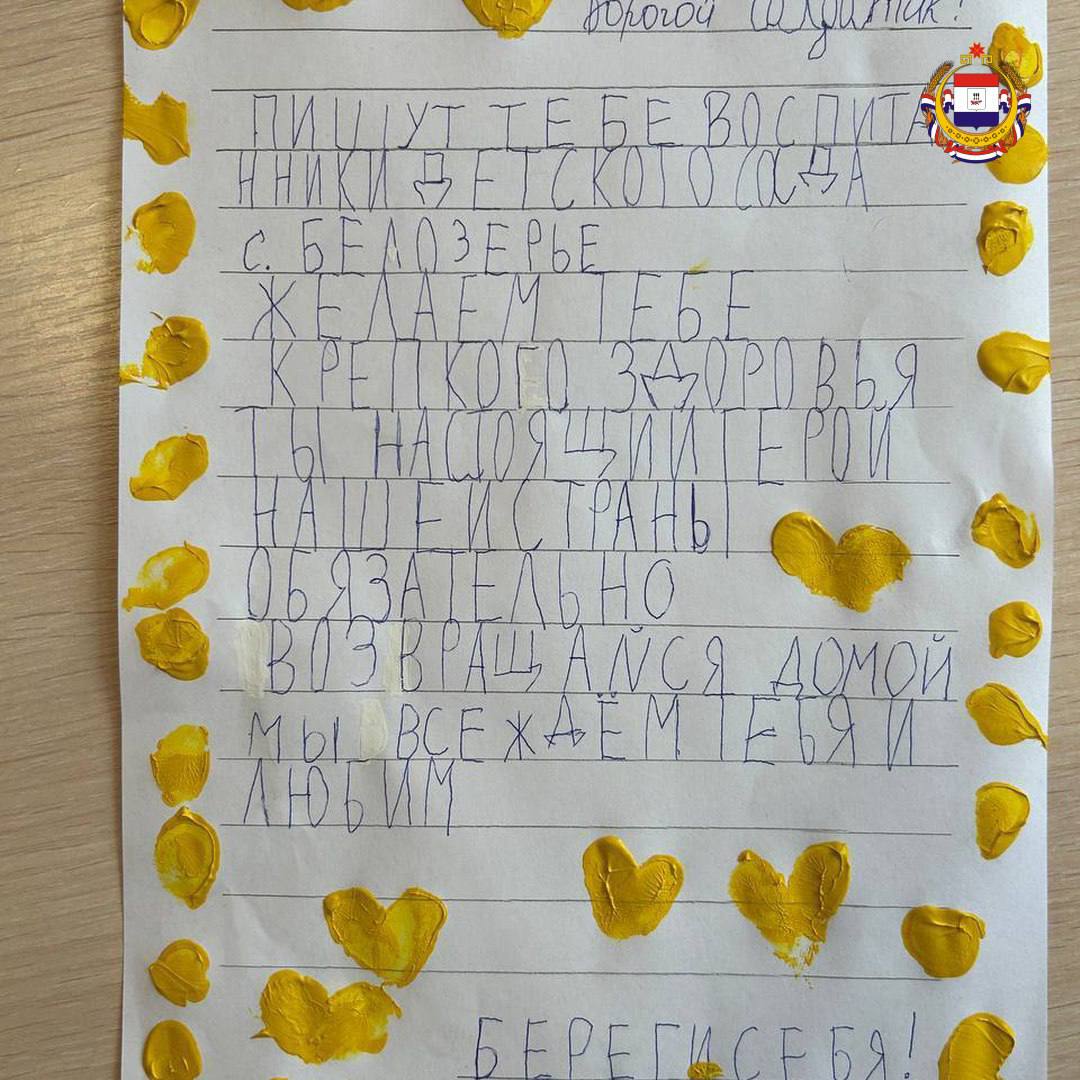 Дорогой солдатик!
ПИШУТ ТЕБЕ ВОСПИТА
ННИКИ ДЕТСКОГО САДА
с. БЕЛОЗЕРЬЕ
ЖЕЛАЕМ ТЕБЕ
КРЕПКОГО ЗДОРОВЬЯ
ТЫ НАСТОЯЩИЙ ГЕРОЙ
НАШЕЙ СТРАНЫ
ОБЯЗАТЕЛЬНО
ВОЗВРАЩАЙСЯ ДОМОЙ
МЫ ВСЕ ЖДЁМ ТЕБЯ И
ЛЮБИМ
БЕРЕГИ СЕБЯ!